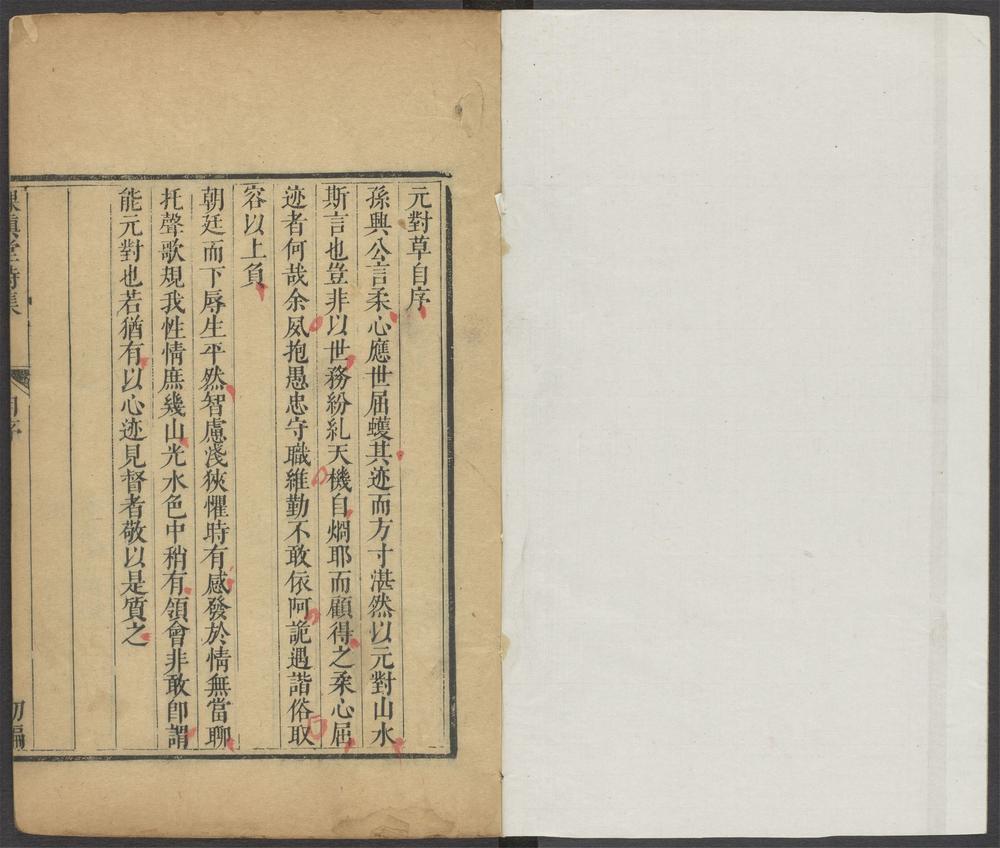 元對草自序
孫興公言柔心應世屈蠖其迹而方寸湛然以元對山水
斯言也豈非以世務紛糺天機自烱耶而顧得之柔心屈
迹者何哉余夙抱愚忠守職維勤不敢依阿詭遇諧俗取
容以上負
朝廷而下辱生平然智慮淺狹懼時有感發於情無當聊
托聲歌規我性情庶幾山光水色中稍有領會非敢卽謂
能元對也若猶有以心迹見督者敬以是質之
堂詩集
自序
初編